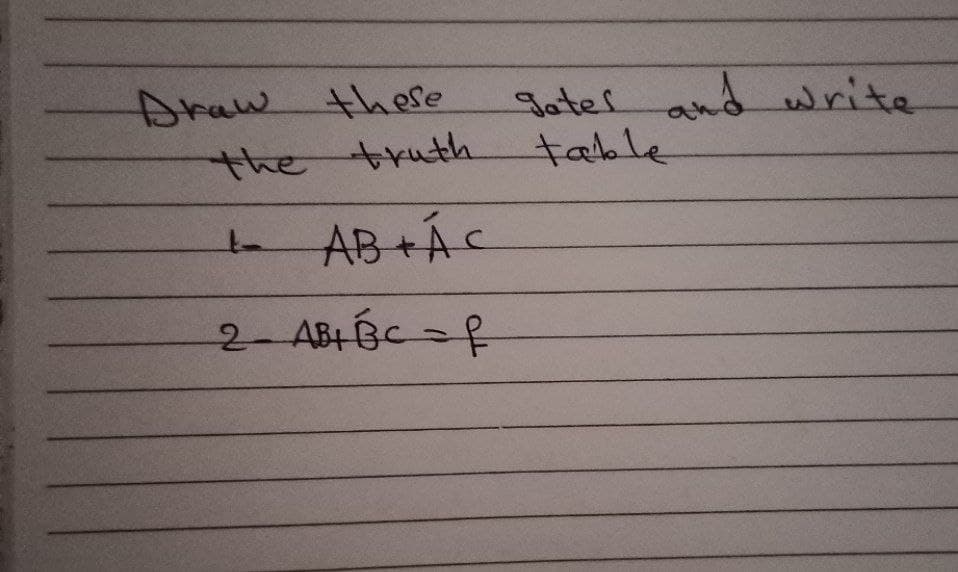 Draw these gates and write
the truth table
1- AB + Á C
2- AB+ B́C = f